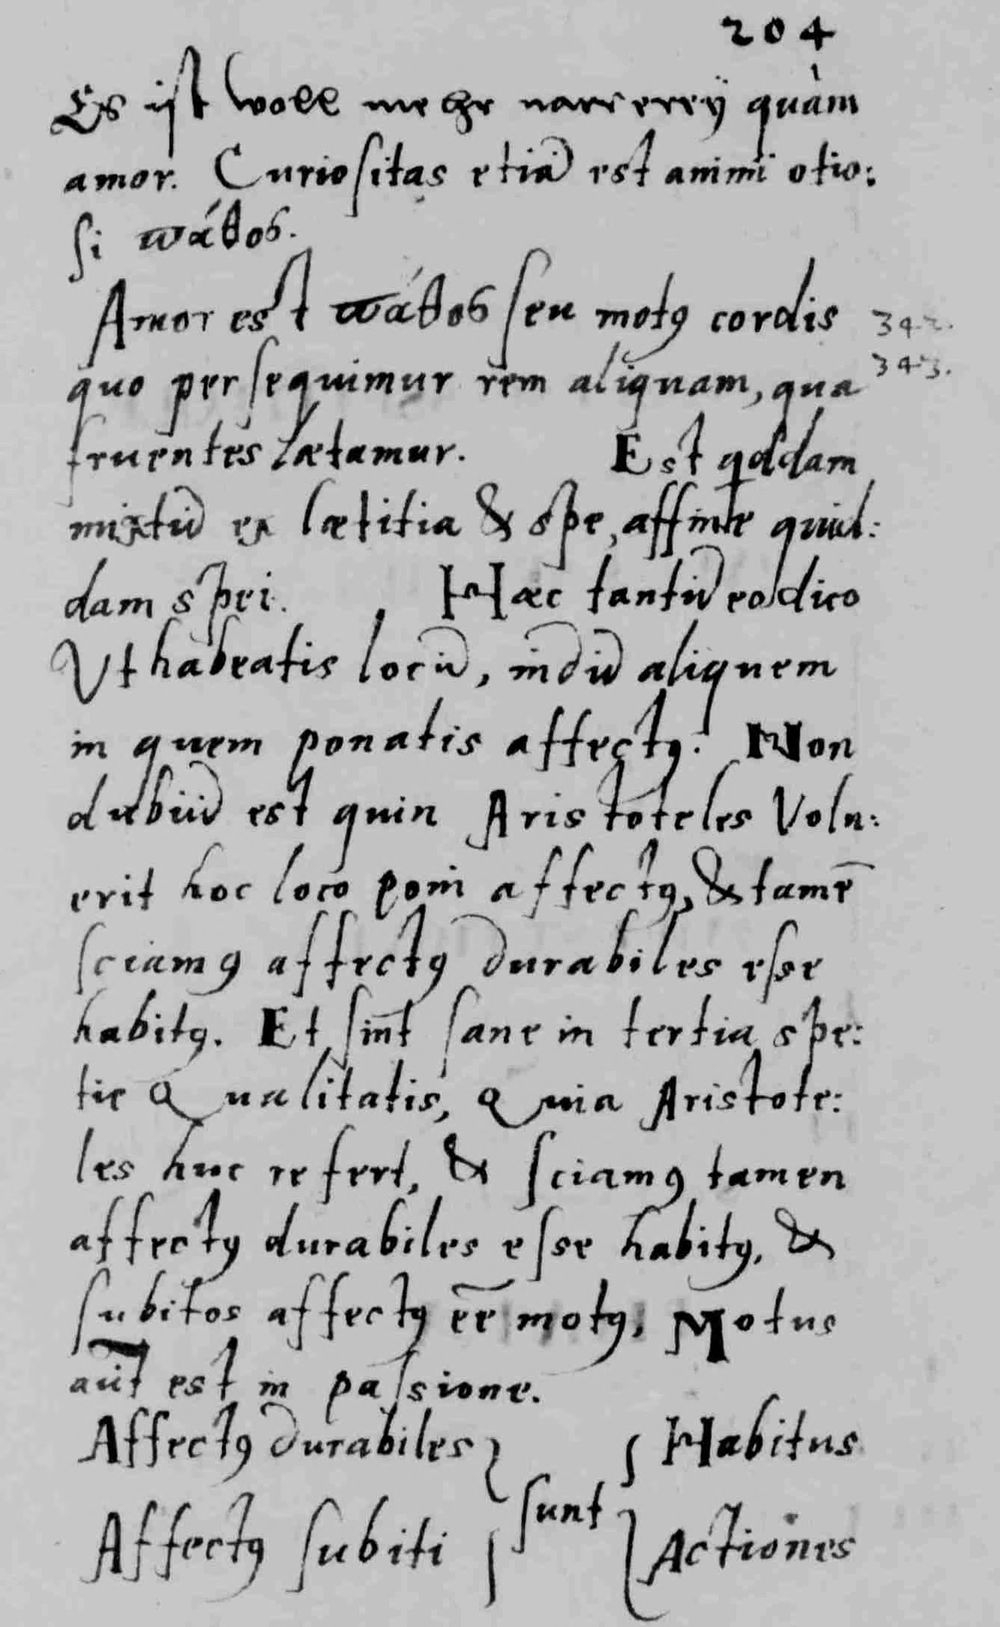 204
Es ist woll mehr narrereÿ quàm
amor. Curiositas etiā est animi otio:
si πάθος.
Amor est πάθος seu motꝰ cordis 342.
quo persequimur rem aliquam, qua 343.
fruentes lætamur. Est qddam
mixtū ex lætitia & spe, affine quid:
dam spei. Hæc tantū eo dico
Vt habeatis locū, modū aliquem
in quem ponatis affectꝰ. Non
dubiū est quin Aristoteles Volu:
erit hoc loco poni affectꝰ, & tamē
sciamꝰ affectꝰ durabiles esse
habitꝰ. Et sint sane in tertia spe:
tie Qualitatis, Quia Aristote:
les huc refert, & sciamꝰ tamen
affectꝰ durabiles esse habitꝰ, &
subitos affectꝰ ēē motꝰ, Motus
aūt est in passione.
Affectꝰ durabiles } { Habitus
sunt
Affectꝰ subiti } { Actiones